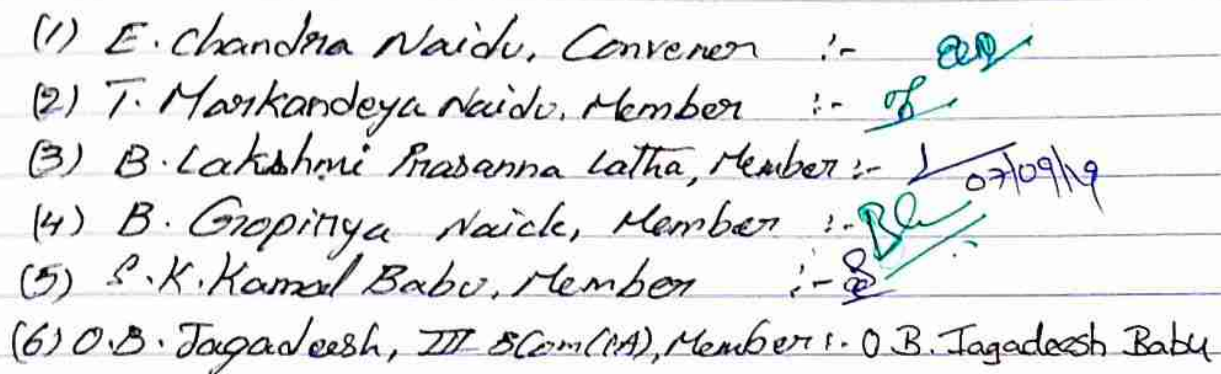 (1) E. Chandra Naidu, Convener :-
(2) T. Markandeya Naidu, Member :-
(3) B. Lakshmi Prasanna Latha, Member :- 07/09/19
(4) B. Gopinya Naick, Member :-
(5) S.K. Kamal Babu, Member :-
(6) O.B. Jagadeesh, III BCom(CA), Member :- O B. Jagadeesh Babu